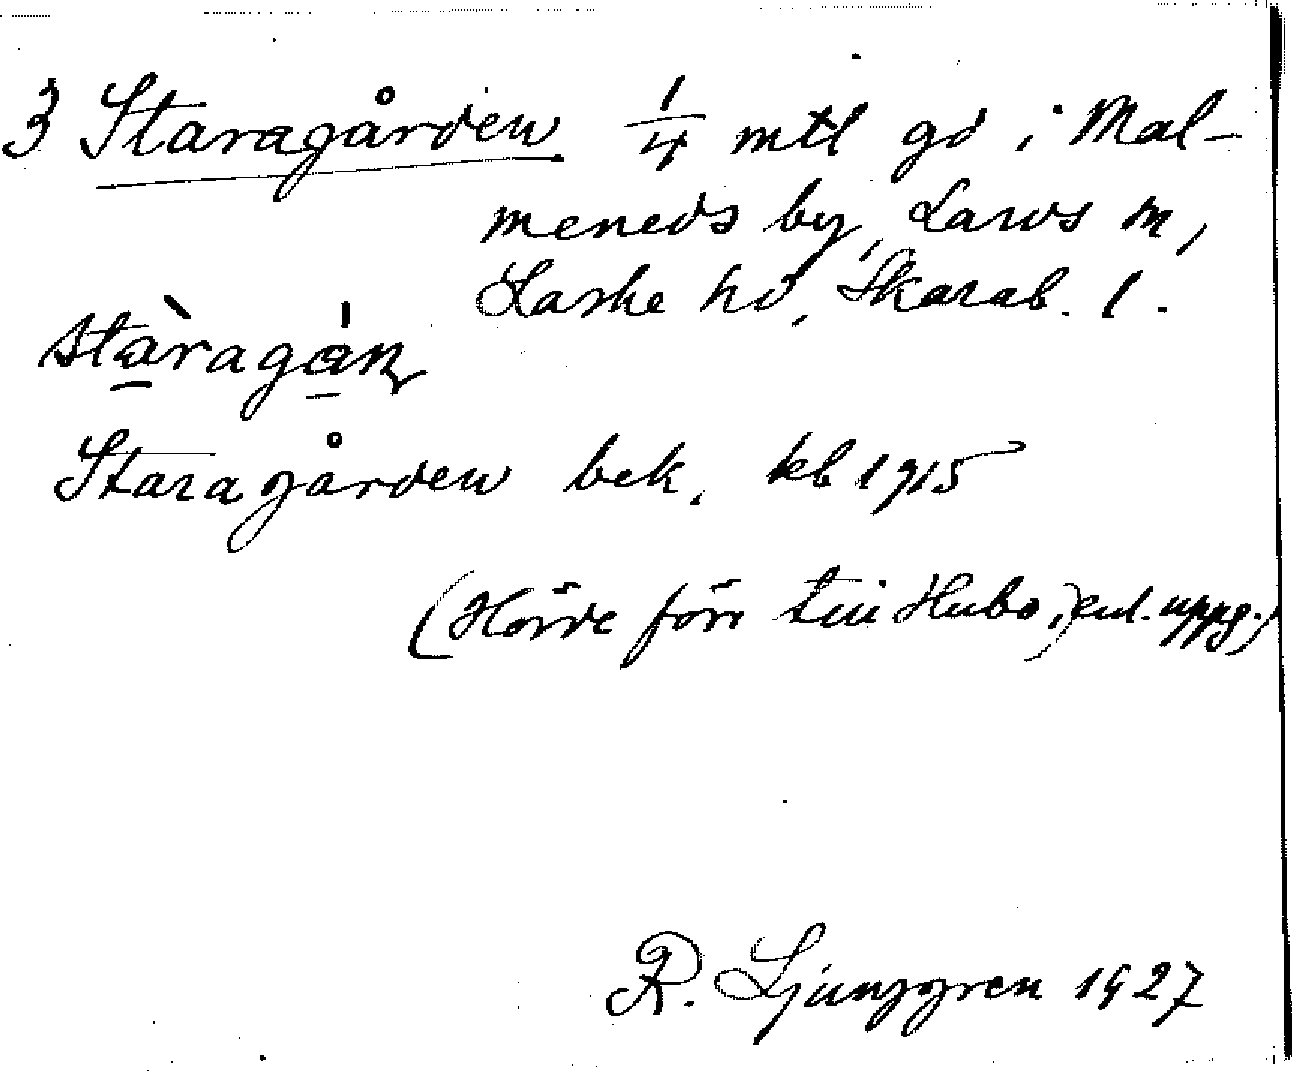 3 Staragården 1/4 mtl gd i Mal-
meneds by, Larvs sn,
Laske hd, Skarab. l.
stàragán
Staragården bek. kb 1915
(Hörde förr till Hubo, enl. uppg.)
R. Ljunggren 1927